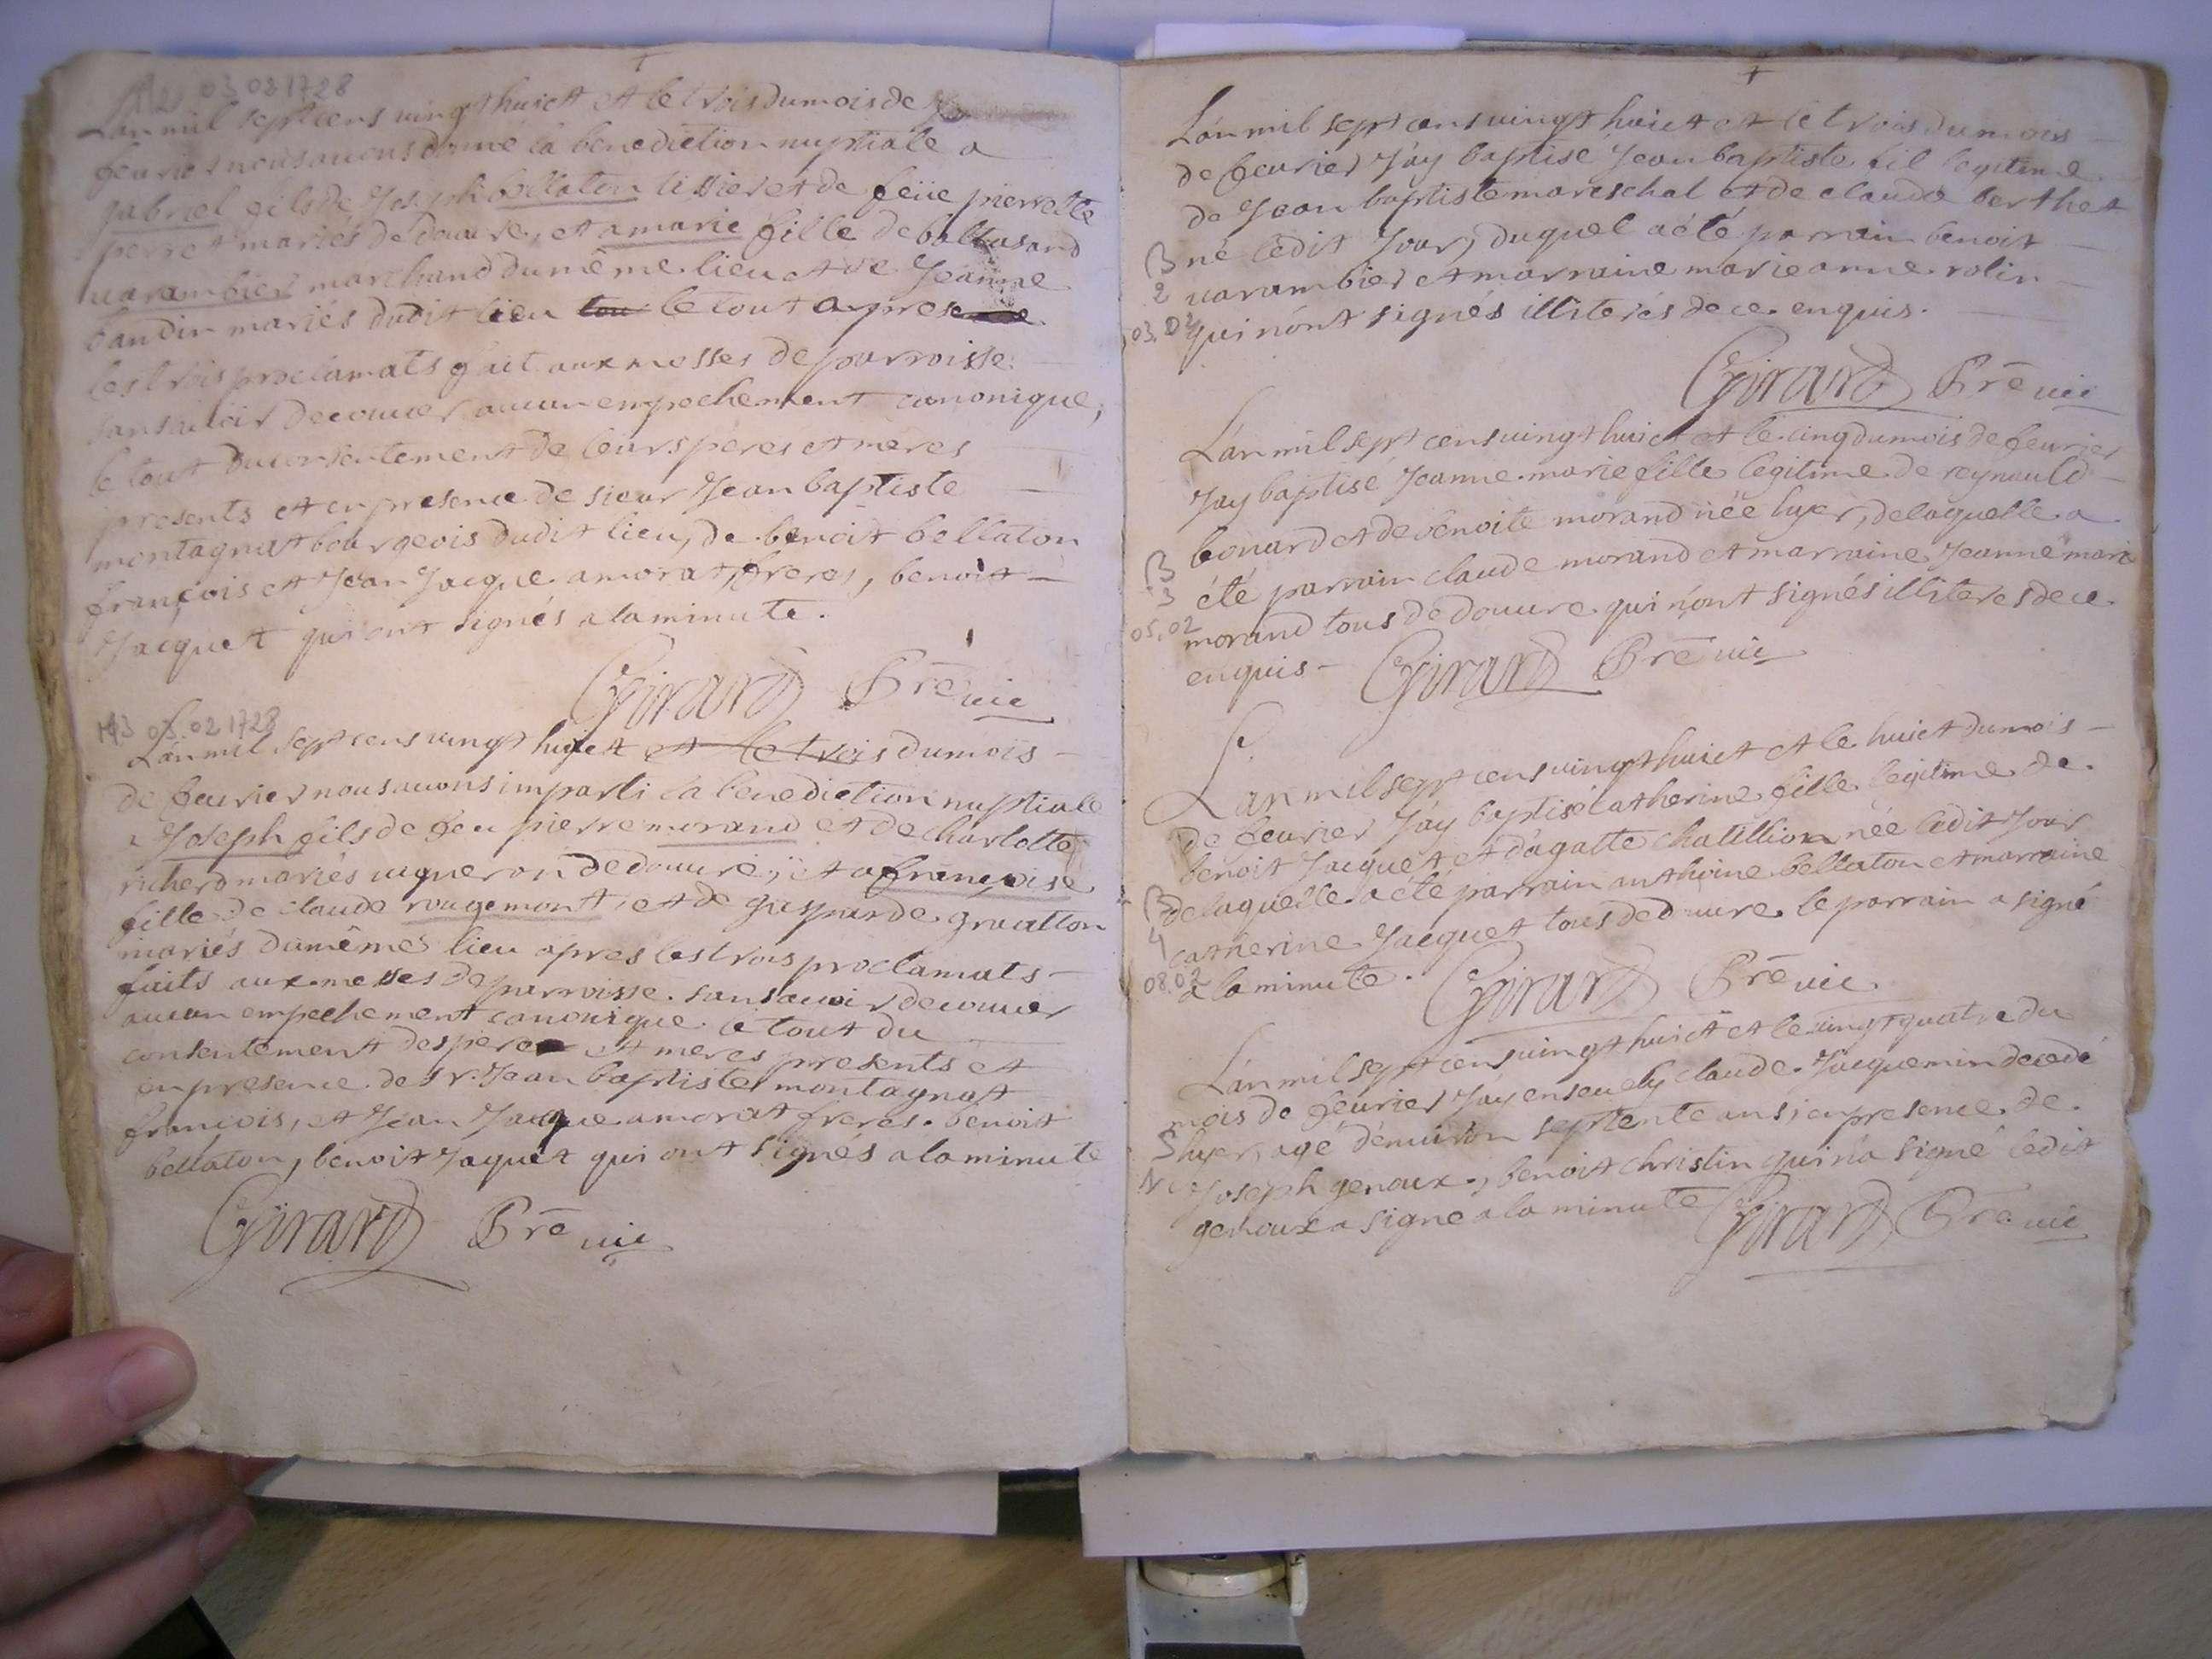 M2 03 03 1728
L'an mil sept cens vingt huict et le trois du mois de
feurier nous auons donné la benediction nuptiale a
gabriel fils de Joseph bellaton tissier et de feüe pierrette
perret mariés de douure, et a marie fille de baltasard
uarambier marchand du même lieu et de Jeanne
baudin mariés dudit lieu tou le tout apres
les trois proclamats fait aux messes de parroisse
sans auoir decouuer aucun empechement canonique,
le tout du consentement de leurs peres et meres
presents et en presence de sieur Jean baptiste
montagnat bourgeois dudit lieu, de benoit bellaton
françois et Jean Jacque amorat freres, benoit
Jacquet qui ont signés a la minute.
Girard Prē uic
M3 03.02 1728
L'an mil sept cens vingt huict et le trois du mois
de feurier nous auons imparti la benediction nuptiale
a Joseph fils de feu pierre morand et de charlotte
richerd mariés uigneron de douure, et a françoise
fille de claude rougemont, et de gasparde graullon
mariés du même lieu apres les trois proclamats
faits aux messes de parroisse sans auoir decouuer
aucun empechement canonique le tout du
consentement des peres et meres presents et
en presence de sr. Jean baptiste montagnat
francois, et Jean Jacque amorat freres. benoit
bellaton, benoit Jaquet qui ont signés a la minute
Girard Prē uic
L'an mil sept cens uingt huict et le trois du mois
de feurier J'ay baptisé Jean baptiste fil legitime
de Jean baptiste mareschal et de claude berthet
né ledit Jour, duquel a été parrain benoit
uarambier et marraine marie anne rolin
qui n'ont signés illiterés de ce enquis.
B
2
03.02
Girard Prē uic
L'an mil sept cens uingt huict et le cinq du mois de feurier
J'ay baptisé Jeanne marie fille legitime de reynauld
bonard et de benoite morand née hyer, de laquelle a
été parrain claude morand et marraine Jeanne marie
morand tous de douure qui n'ont signés illiteres de ce
enquis
B
3
05.02
Girard Prē uic
L'an mil sept cens uingt huict et le huict du mois
de feurier J'ay baptisé catherine fille legitime de
benoit Jacquet et d'agatte chatillion née ledit Jour
de laquelle a été parrain anthoine bellaton et marraine
catherine Jacquet tous de douure le parrain a signé
a la minute.
B
4
08.02
Girard Prē uic
L'an mil sept cens uingt huict et le uingt quatre du
mois de feurier J'ay enseuely claude Jacquemin decedé
hyer, agé d'enuiron septente ans, en presence de
Joseph genoux, benoit christin qui n'a signé ledit
genoux a signe a la minute
S
Girard Prē uic